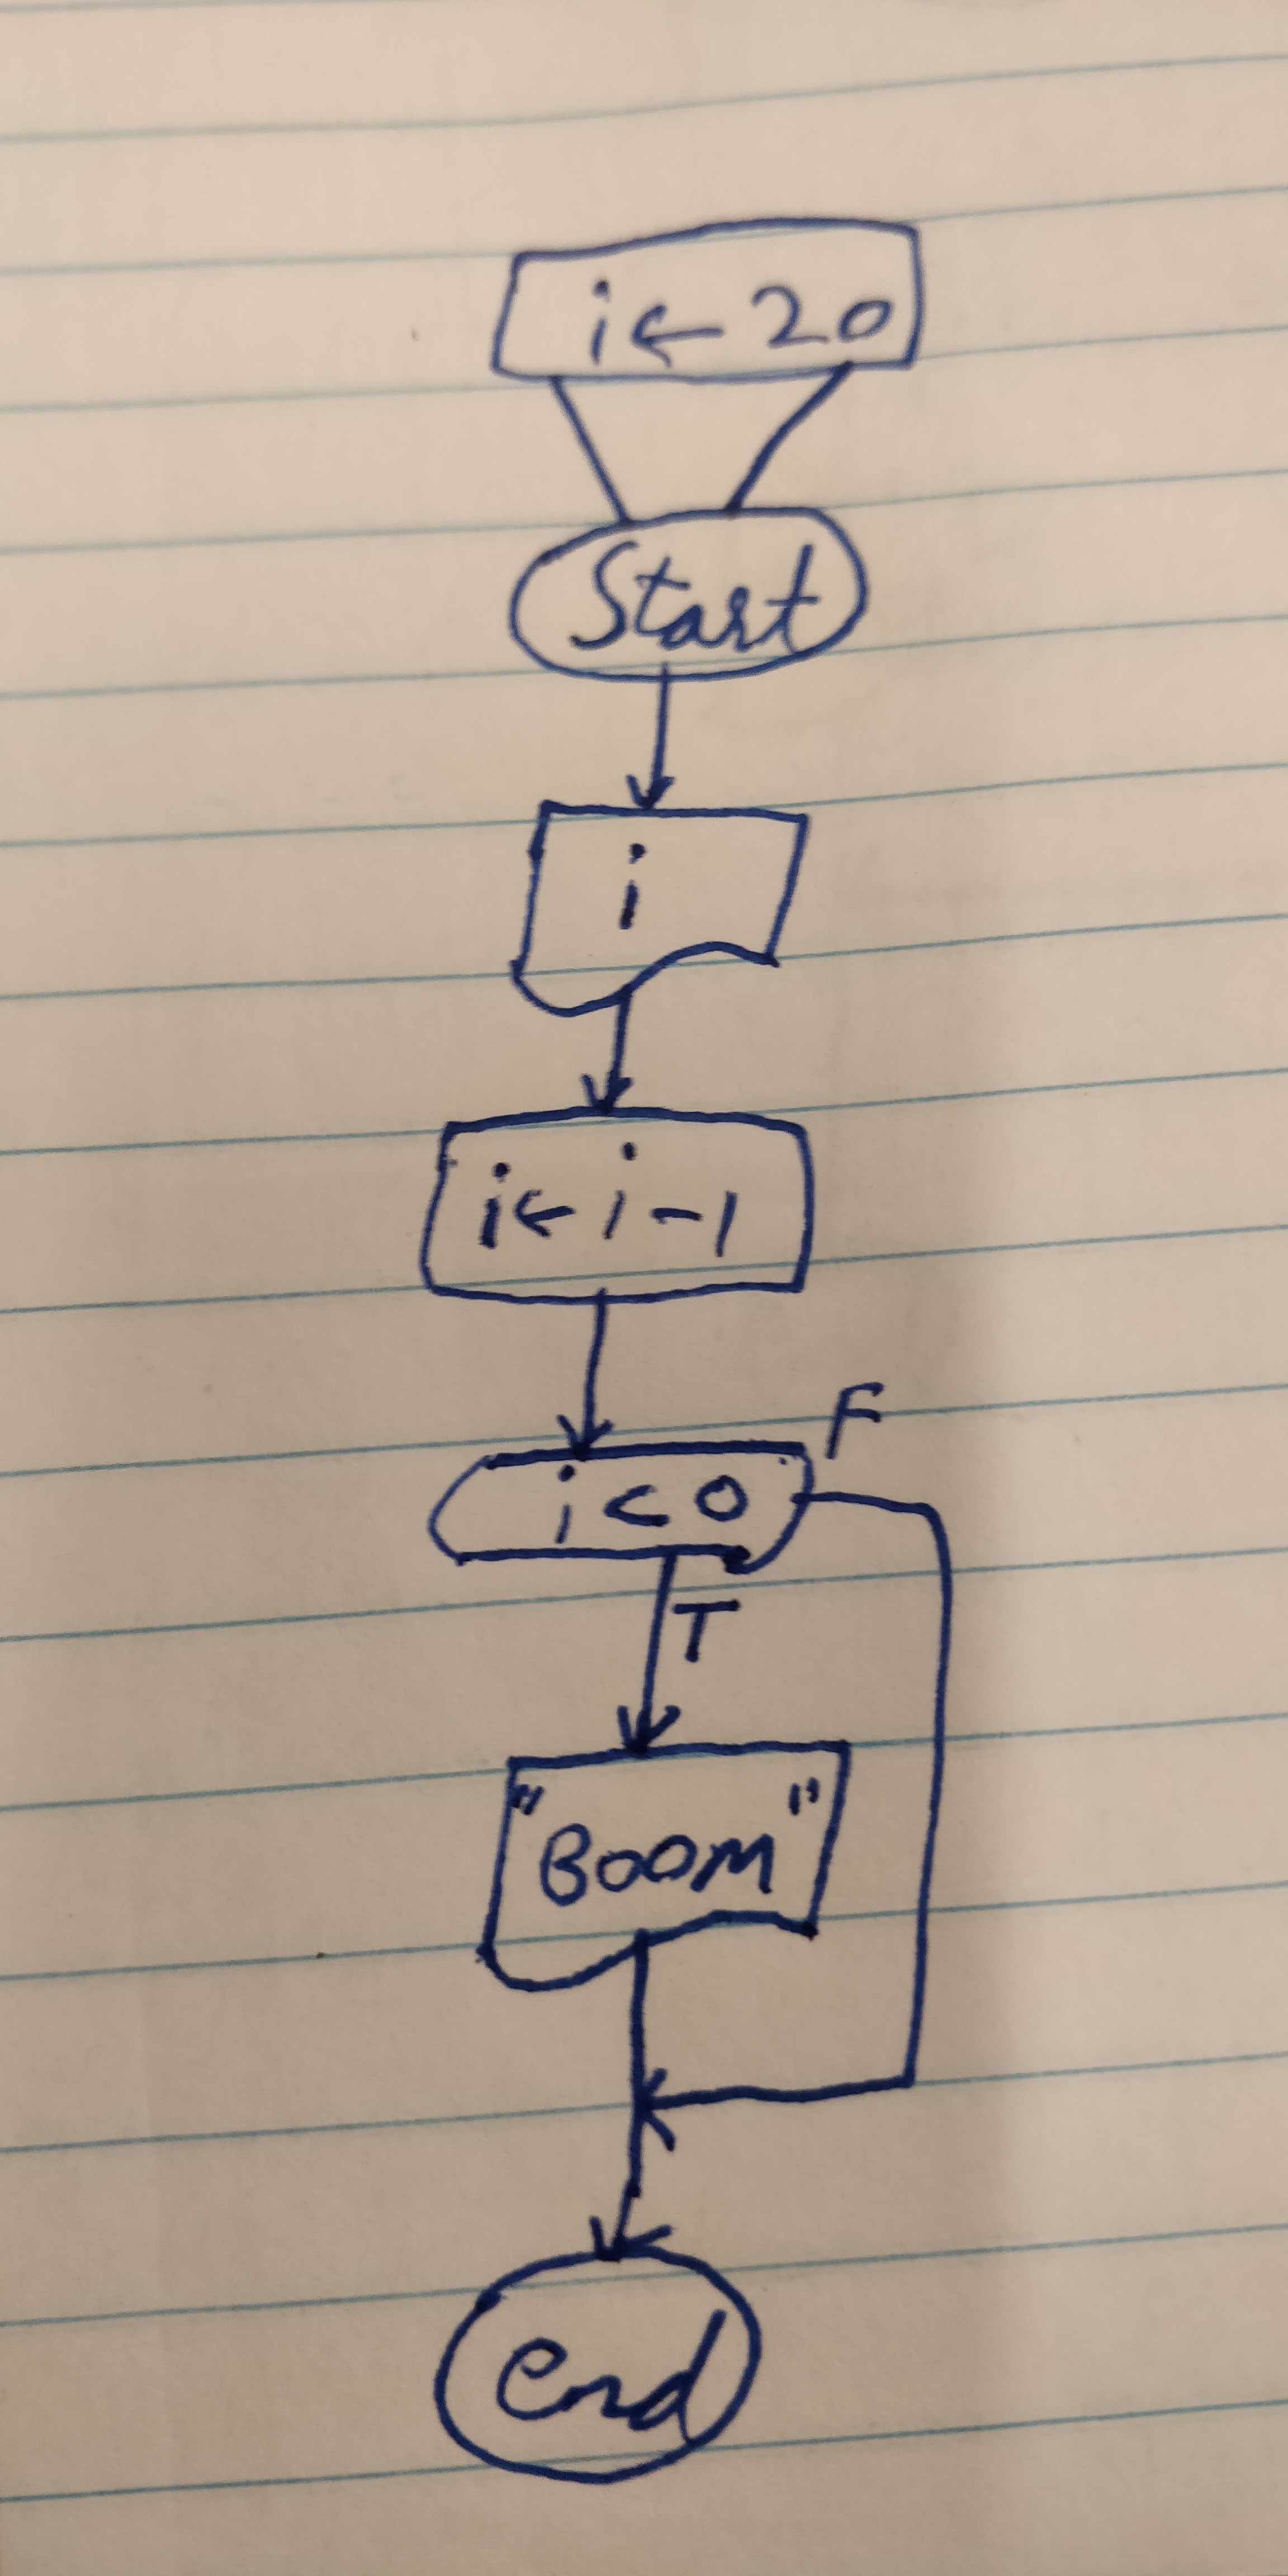 i ← 20
Start
i
i ← i - 1
F
i < 0
T
"Boom"
end